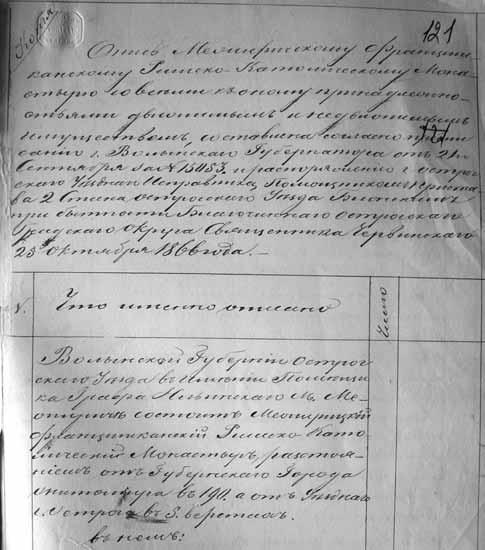 Копія
121
Опись Межирицкому Францишканскому
Римско-Католическому Мона-
стырю со всеми къ оному принадлежно-
стями движимымъ и недвижимымъ
имуществомъ, составлена согласно
г. Волынскаго Губернатора отъ 21
Сентября за № 15853 и распоряженію г. Острог-
скаго Уѣзднаго Исправника, Помощникомъ Приста-
ва 2 Стана Острогскаго Уѣзда
при бытности Благочиннаго Острогскаго
Градскаго Округа Священника Червинскаго
25 Октября 1866 года. —
N.
Что именно описано
Число
Волынской Губерніи Острог-
скаго Уѣзда въ имѣніи Помѣщи-
ка Графа М. Ме-
жиричъ состоитъ Межирицкій
Францишканскій Римско-Като-
лическій Монастырь, разстоя-
ніемъ отъ Губернскаго Города
Житомира въ 190. а отъ Уѣзднаго
г. Острога въ 3. верстахъ.
въ немъ: